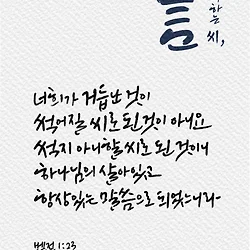 하는
씨,
너희가 거듭난 것이
썩어질 씨로 된 것이 아니요
썩지 아니할 씨로 된 것이니
하나님의 살아있고
항상있는 말씀으로 되었느니라
벧전 1:23